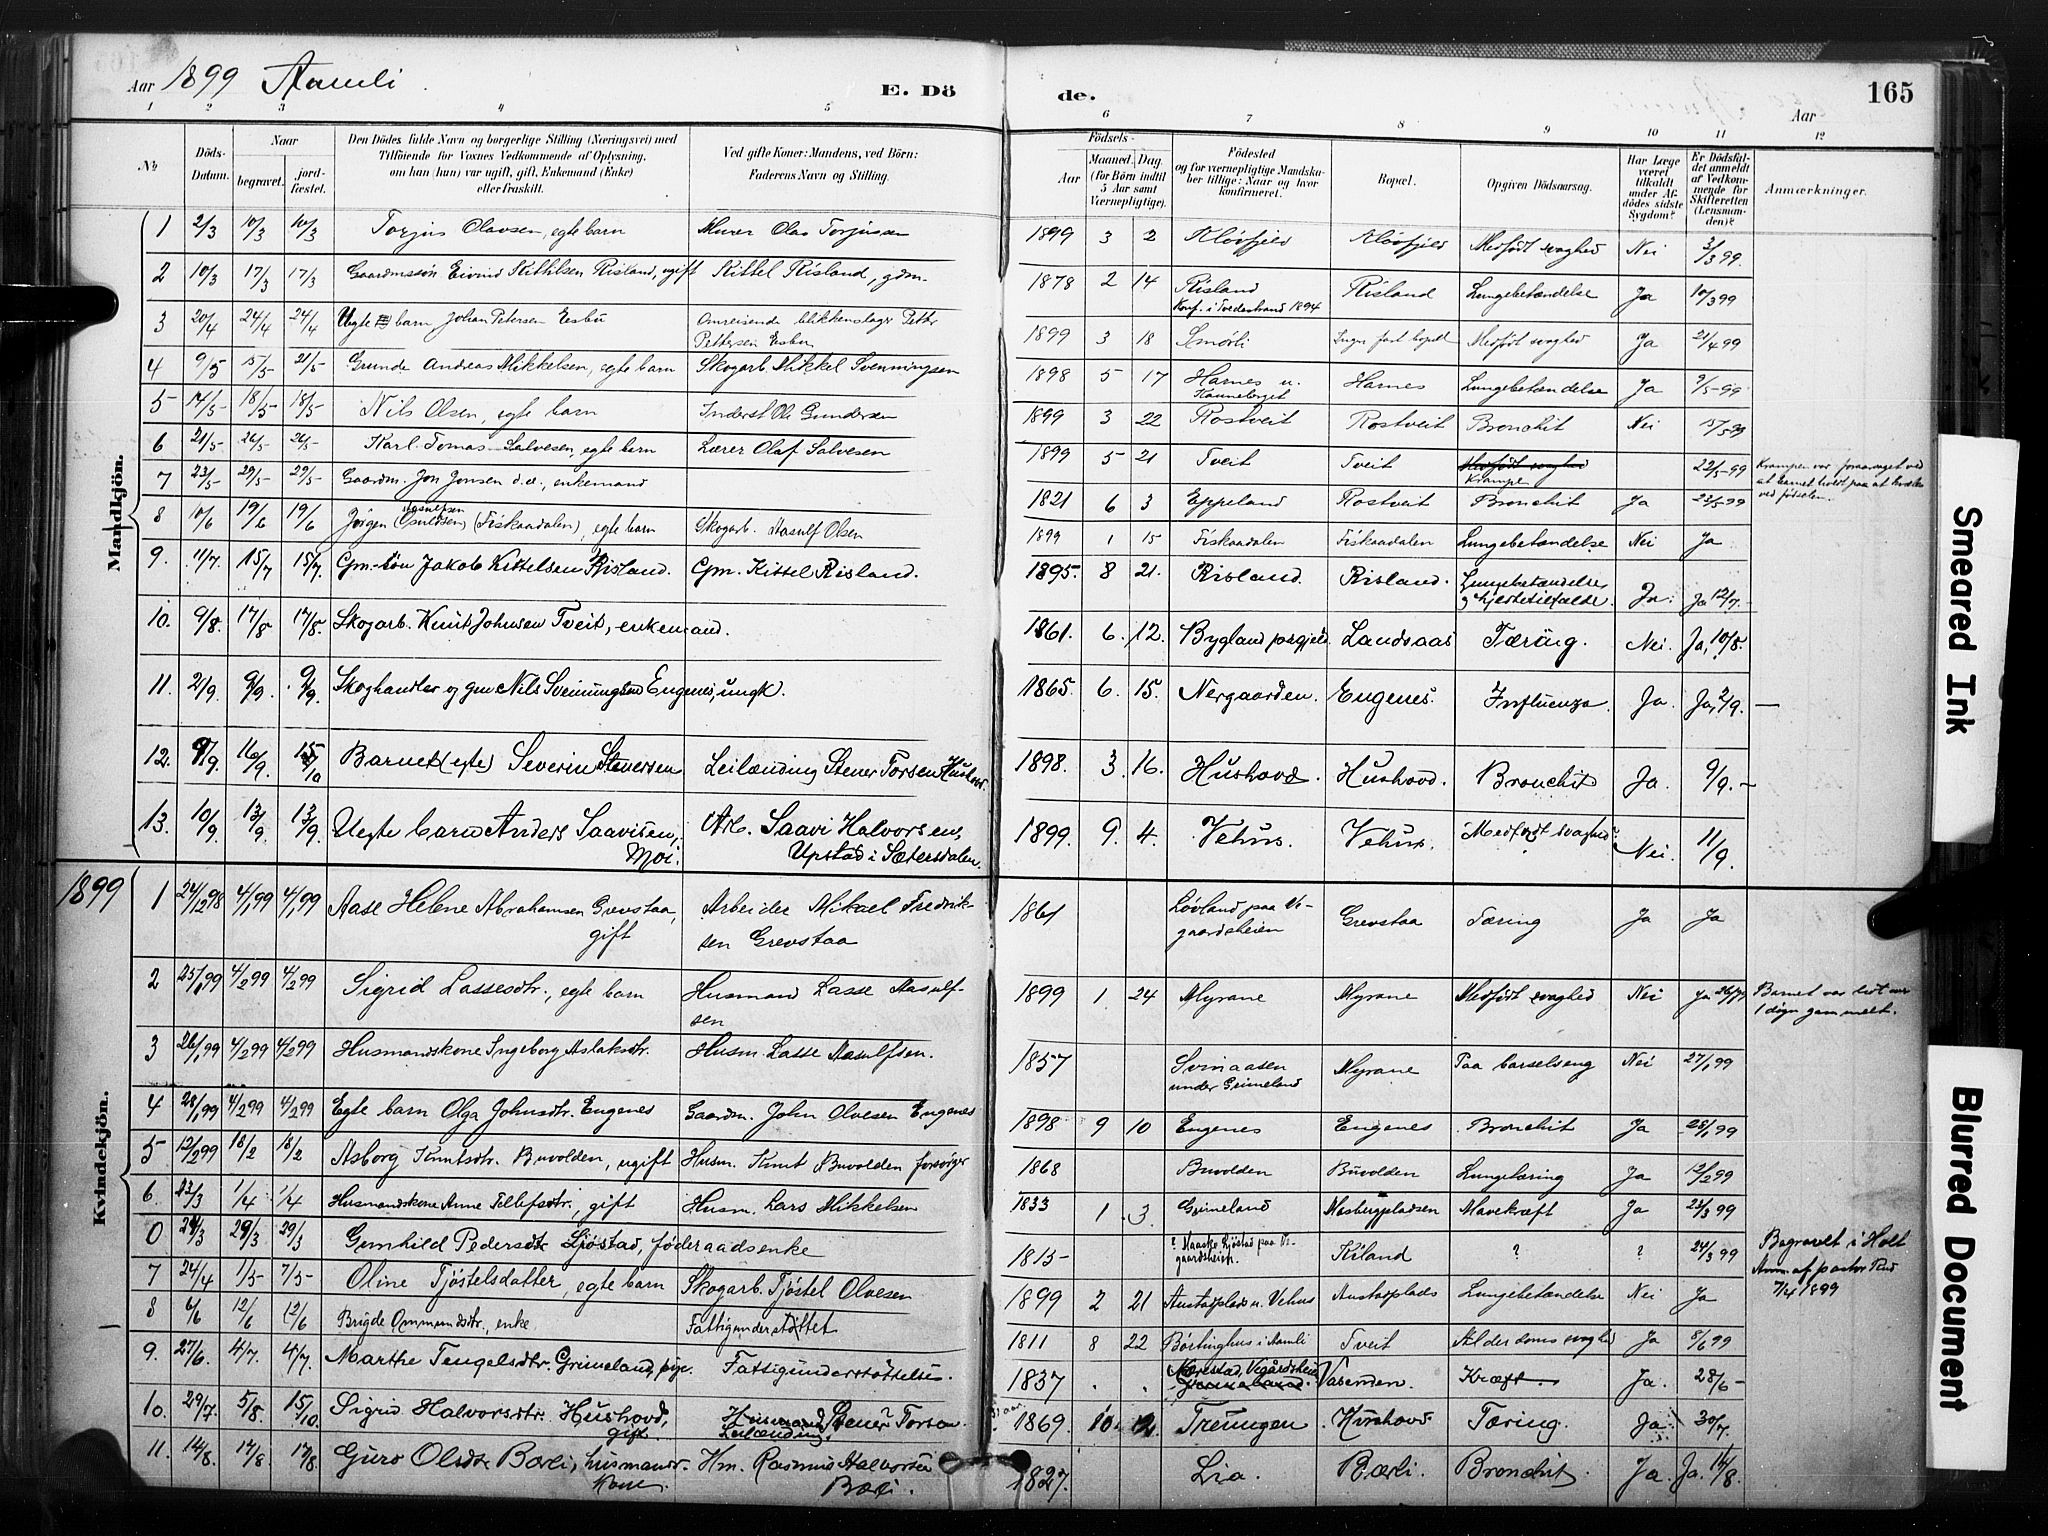 Aar 1899 Aamli
E. Dö
de.
165
Aar
1 2 3 4 5 6 7 8 9 10 11 12
No
Döds-Datum.
Naar
begravet.
jord-fæstet.
Den Dödes fulde Navn og borgerlige Stilling (Næringsvei) med
Tilföiende for Voxnes Vedkommende af Oplysning,
om han (hun) var ugift, gift, Enkemand (Enke)
eller fraskilt.
Ved gifte Koner: Mandens, ved Börn:
Faderens Navn og Stilling.
Födsels-
Aar
Maaned. Dag.
(for Börn indtil
5 Aar samt
Værnepligtige).
Födested
og for værnepligtige Mandska-
ber tillige: Naar og hvor
konfirmeret.
Bopæl.
Opgiven Dödsaarsag.
Har Læge
været
tilkaldt
under Af-
dödes sidste
Sygdom?
Er Dödsfal-
det anmeldt
af Vedkom-
mende for
Skifteretten
(Lensman-
den)?
Anmærkninger.
Mandkjön.
1 2/3 10/3 10/3 Torjus Olavsen, egte barn Murer Olav Torjusen 1899 3 2 Kløvfjeld Kløvfjeld Medfødt svaghed Nei 3/3 99.
2 10/3 17/3 17/3 Gaardmssøn Eivind Kittilsen Risland, ugift Kittel Risland, gdm. 1878 2 14 Risland Risland Lungebetændelse Ja 10/3 99
Konf. i Tvedestrand 1894
3 20/4 24/4 24/4 Uegte barn Johan Petersen Eesbu Omreisende blikkenslager Petter 1899 3 18 Smørli Ingen fast bopæl Medfødt svaghed Ja 21/4 99
Pettersen Eesbu
4 9/5 15/5 21/5 Gunde Andreas Mikkelsen, egte barn Skogarb. Mikkel Svenningsen 1898 5 17 Harnes u. Harnes Lungebetændelse Ja 9/5-99
5 14/5 18/5 18/5 Nils Olsen, egte barn Inderst Ole Gundersen 1899 3 22 Rostveit Rostveit Bronchit Nei 15/5 99
6 21/5 26/5 26/5 Karl Tomas Salvesen, egte barn Lærer Olaf Salvesen 1899 5 21 Tveit Tveit Medfødt svaghed 22/5-99 Krampen var foraarsaget ved
Krampe at barnet holdt paa at kvæles
ved fødselen.
7 23/5 29/5 29/5 Gaardm. Jon Jonsen d.æ., enkemand 1821 6 3 Eppeland Rostveit Bronchit Ja 23/5 99
8 10/6 19/6 19/6 Jørgen Aasulfsen (Fiskaadalen), egte barn Skogarb. Aasulf Olsen 1899 1 15 Fiskaadalen Fiskaadalen Lungebetændelse Nei Ja
9. 11/7. 15/7 15/7. Gm.-søn Jakob Kittelsen Risland. Gm. Kittel Risland. 1895. 8 21. Risland. Risland. Lungebetændelse Ja. Ja 12/7.-
og hjertetilfælde.
10. 9/8. 17/8 17/8. Skogarb. Knut Johnsen Tveit, enkemand. 1861. 6. 12. Bygland præstgjeld Landsaas Tæring. Nei. Ja, 10/8.
11. 2/9. 9/9. 9/9. Skoghandler og gm Nils Sveinungsen Engenes, ungk. 1865. 6. 15. Nergaarden. Engenes. Influenza. Ja. Ja, 2/9.-
12. 9/9. 16/9. 15/10 Barnet (egte) Severin Stenersen Leilænding Stener Torsen Hushovd. 1898. 3. 16. Hushovd. Hushovd. Bronchit Ja. 9/9.-
13. 10/9. 13/9. 13/9. Uegte barn Anders Saavisen, Arb. Saavi Halvorsen, 1899. 9. 4. Vehus. Vehus. Medfødt svaghed Nei. 11/9.
Moi. Upstad i Sætersdalen.
1899
Kvindekjön.
1 24/12 98 4/1 99 4/1 99 Aase Helene Abrahamsen Grevstaa, Arbeider Mikael Fredrik- 1861 Løvland paa Ve- Grevstaa Tæring Ja Ja
gift sen Grevstaa gaardsheien
2 25/1 99 4/2 99 4/2 99 Sigrid Lassesdtr., egte barn Husmand Lasse Aasulf- 1899 1 24 Myrane Myrane Medfødt svaghed Nei Ja Barnet var lidt over
sen 1 døgn gammelt.
3 26/1 99 4/2 99 4/2 99 Husmandskone Ingeborg Aslaksdtr. Husm. Lasse Aasulfsen. 1857 Svinaasen Myrane Paa barselseng Nei 27/1 99
under Grimeland
4 28/1 99 4/2 99 4/2 99 Egte barn Olga Johnsdtr. Engenes Gaardm. John Olvesen Engenes 1898 9 10 Engenes Engenes Bronchit Ja 28/1 99
5 12/2 99 18/2 18/2 Asborg Knutsdtr. Buvolden, ugift Husm. Knut Buvolden forsørger 1868 Buvolden Buvolden Lungetæring Ja 12/2 99
6. 23/3 1/4 1/4 Husmandskone Anne Tellefsdtr., gift Husm. Lars Mikkelsen 1833 1 3 Grimeland Masbergpladsen Mavekræft Ja 25/3 99
0 24/3 29/3 29/3 Gunhild Pedersdtr Ljøstad, føderaadsenke 1815 ? Maaske Ljøstad paa Ve- Kiland ? ? 24/3 99 Begravet i Holt
gaardsheien. Anm. af pastor Rud
7/4 1899
7 24/4 1/5- 7/5- Oline Tjøstelsdatter, egte barn Skogarb. Tjøstel Olvesen 1899 2 21 Austadplads u. Vehus Austadplads Lungebetændelse Nei Ja
8 6/6 12/6 12/6 Brigde Ommundsdtr., enke Fattigunderstøttet 1811 8 22 Børtinghus i Aamli Tveit Alderdomssvaghed Ja 8/6 99
9. 27/6. 4/7. 4/7. Marthe Tengelsdtr. Grimeland, pige. Fattigunderstøttelse. 1837 . . Nærestad, Vegårdsheien Vasenden. Kræft. Ja. 28/6-
10. 29/7. 5/8. 15/10. Sigrid Halvorsdtr. Hushovd, Husmand Stener Torsen 1869 10. Treungen Hushovd. Tæring. Ja. 30/7.
gift. Leilænding
11. 14/8. 17/8. 17/8. Guro Olsdtr Bærli, husmands- Hm. Rasmus Halvorsen 1827. Lia. Bærli. Bronchit. Ja. Ja. 14/8.
kone. Bærli.
Smeared Ink
Blurred Document